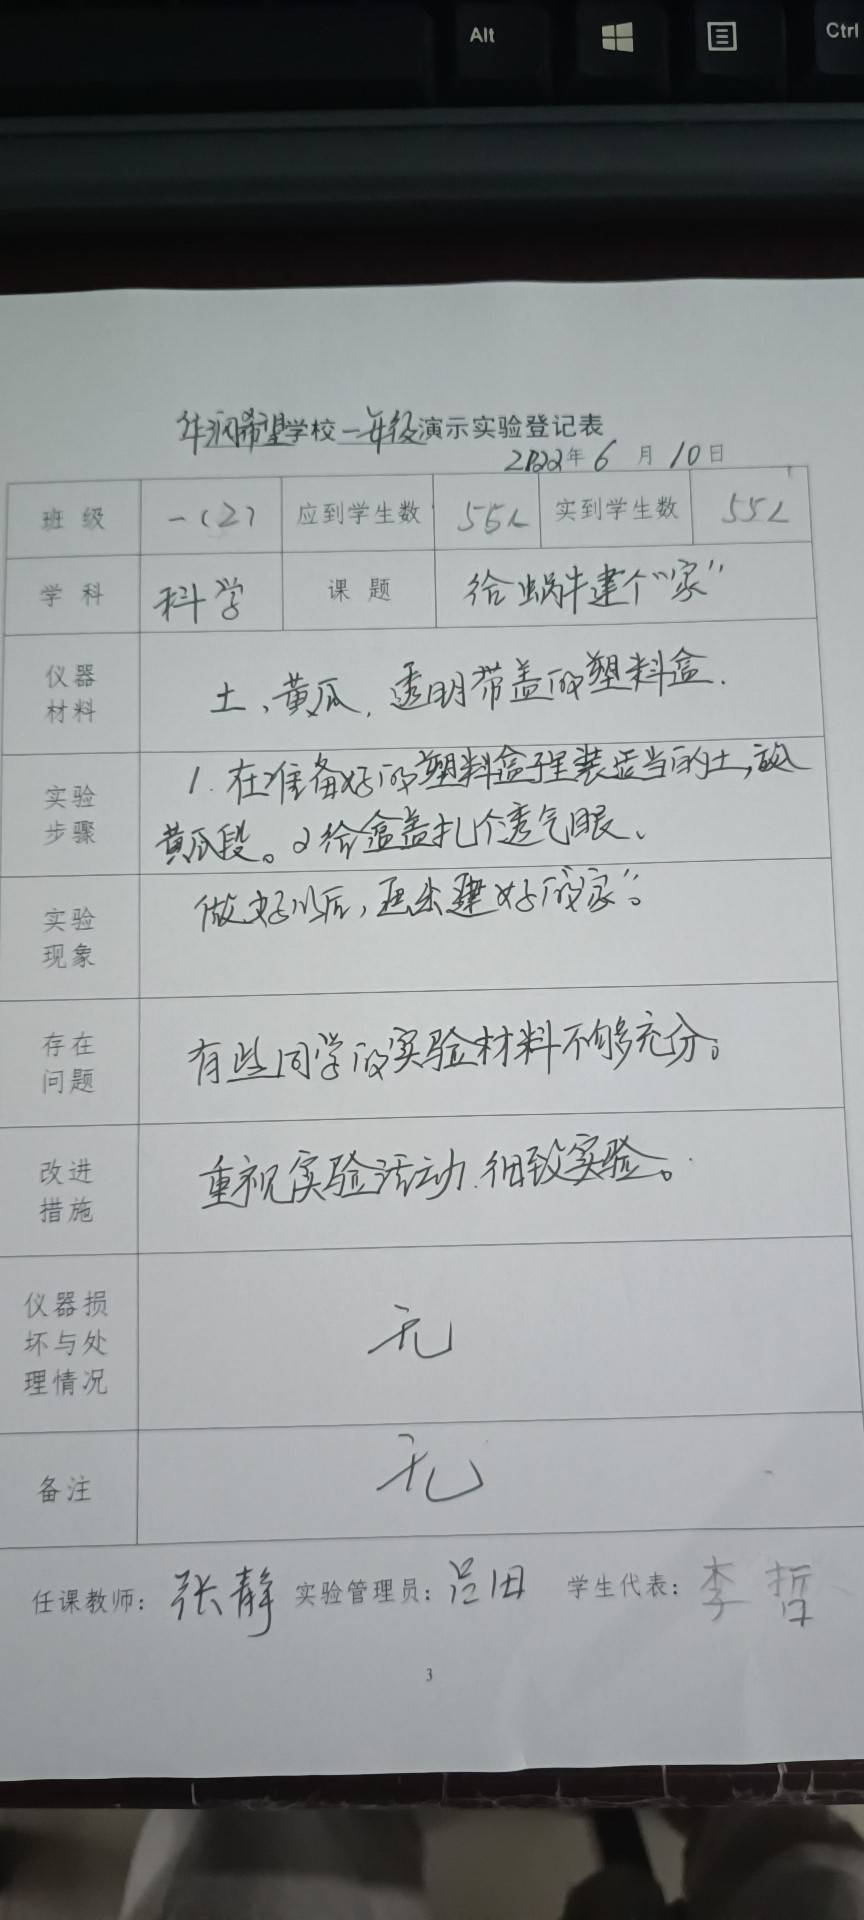 Alt Ctrl
华润希望学校一年级演示实验登记表
2022年6月10日
班级 一(2) 应到学生数 55人 实到学生数 55人
学科 科学 课题 给蜗牛建个“家”
仪器
材料
土、黄瓜、透明带盖的塑料盒.
实验
步骤
1.在准备好的塑料盒子里装适当的土,放
黄瓜段。2给盒盖扎个透气眼、
实验
现象
做好以后,画出建好的“家”。
存在
问题
有些同学的实验材料不够充分。
改进
措施
重视实验活动.细致实验。
仪器损
坏与处
理情况
无
备注
无
任课教师:张静 实验管理员:吕田 学生代表:李哲
3